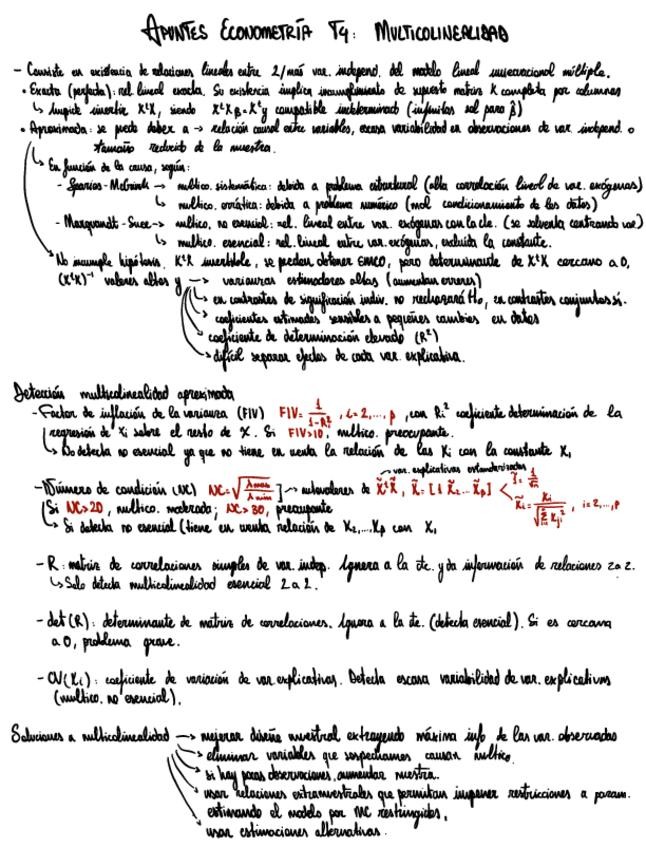 APUNTES ECONOMETRÍA T4: MULTICOLINEALIDAD
- Consiste en existencia de relaciones lineales entre 2/más var. independ. del modelo lineal uniecuacional múltiple.
• Exacta (perfecta): rel. lineal exacta. Su existencia implica incumplimiento de supuesto matriz X completa por columnas
↳ Impide invertir XᵗX, siendo XᵗXβ=Xᵗy compatible indeterminado (infinitas sol para β̂)
• Aproximada: se puede deber a → relación causal entre variables, escasa variabilidad en observaciones de var. independ. o
tamaño reducido de la muestra.
↳ En función de la causa, según:
- Spanos-McGuirk → multico. sistemática: debida a problema estructural (alta correlación lineal de var. exógenas)
↳ multico. errática: debida a problema numérico (mal condicionamiento de los datos)
- Marquandt-Snee → multico. no esencial: rel. lineal entre var. exógenas con la cte. (se solventa centrando var)
↳ multico. esencial: rel. lineal entre var. exógenas, excluida la constante.
↳ No incumple hipótesis. XᵗX invertible, se pueden obtener EMCO, pero determinante de XᵗX cercano a 0,
(XᵗX)⁻¹ valores altos y → varianzas estimadores altas (aumentan errores)
↳ en contrastes de significación indiv. no rechazará H₀, en contrastes conjuntos sí.
↳ coeficientes estimados sensibles a pequeños cambios en datos
↳ coeficiente de determinación elevado (R²)
↳ difícil separar efectos de cada var. explicativa.
Detección multicolinealidad aproximada
- Factor de inflación de la varianza (FIV) FIV= 1/(1-Rᵢ²) , i=2,...,p , con Rᵢ² coeficiente determinación de la
regresión de Xᵢ sobre el resto de X. Si FIV>10, multico. preocupante.
↳ No detecta no esencial ya que no tiene en cuenta la relación de las Xᵢ con la constante X₁
→ var. explicativas estandarizadas
- Número de condición (NC) NC=√(λmax/λmin) → autovalores de X̃ᵗX̃, X̃=[1 X̃₂...X̃p]
X̃ᵢ= Xᵢ/√(ΣXᵢⱼ²) , i=2,...,p
Si NC>20, multico. moderada; NC>30, preocupante
↳ Sí detecta no esencial (tiene en cuenta relación de X₂,...Xp con X₁
- R: matriz de correlaciones simples de var. indep. Ignora a la cte. y da información de relaciones 2 a 2.
↳ Solo detecta multicolinealidad esencial 2 a 2.
- det(R): determinante de matriz de correlaciones. Ignora a la cte. (detecta esencial). Si es cercano
a 0, problema grave.
- CV(Xᵢ): coeficiente de variación de var. explicativas. Detecta escasa variabilidad de var. explicativas
(multico. no esencial).
Soluciones a multicolinealidad → mejorar diseño muestral extrayendo máxima info de las var. observadas
→ eliminar variables que sospechamos causan multico.
→ si hay pocas observaciones, aumentar muestra.
→ usar relaciones extramuestrales que permitan imponer restricciones a param.
estimando el modelo por MC restringidos.
→ usar estimaciones alternativas.